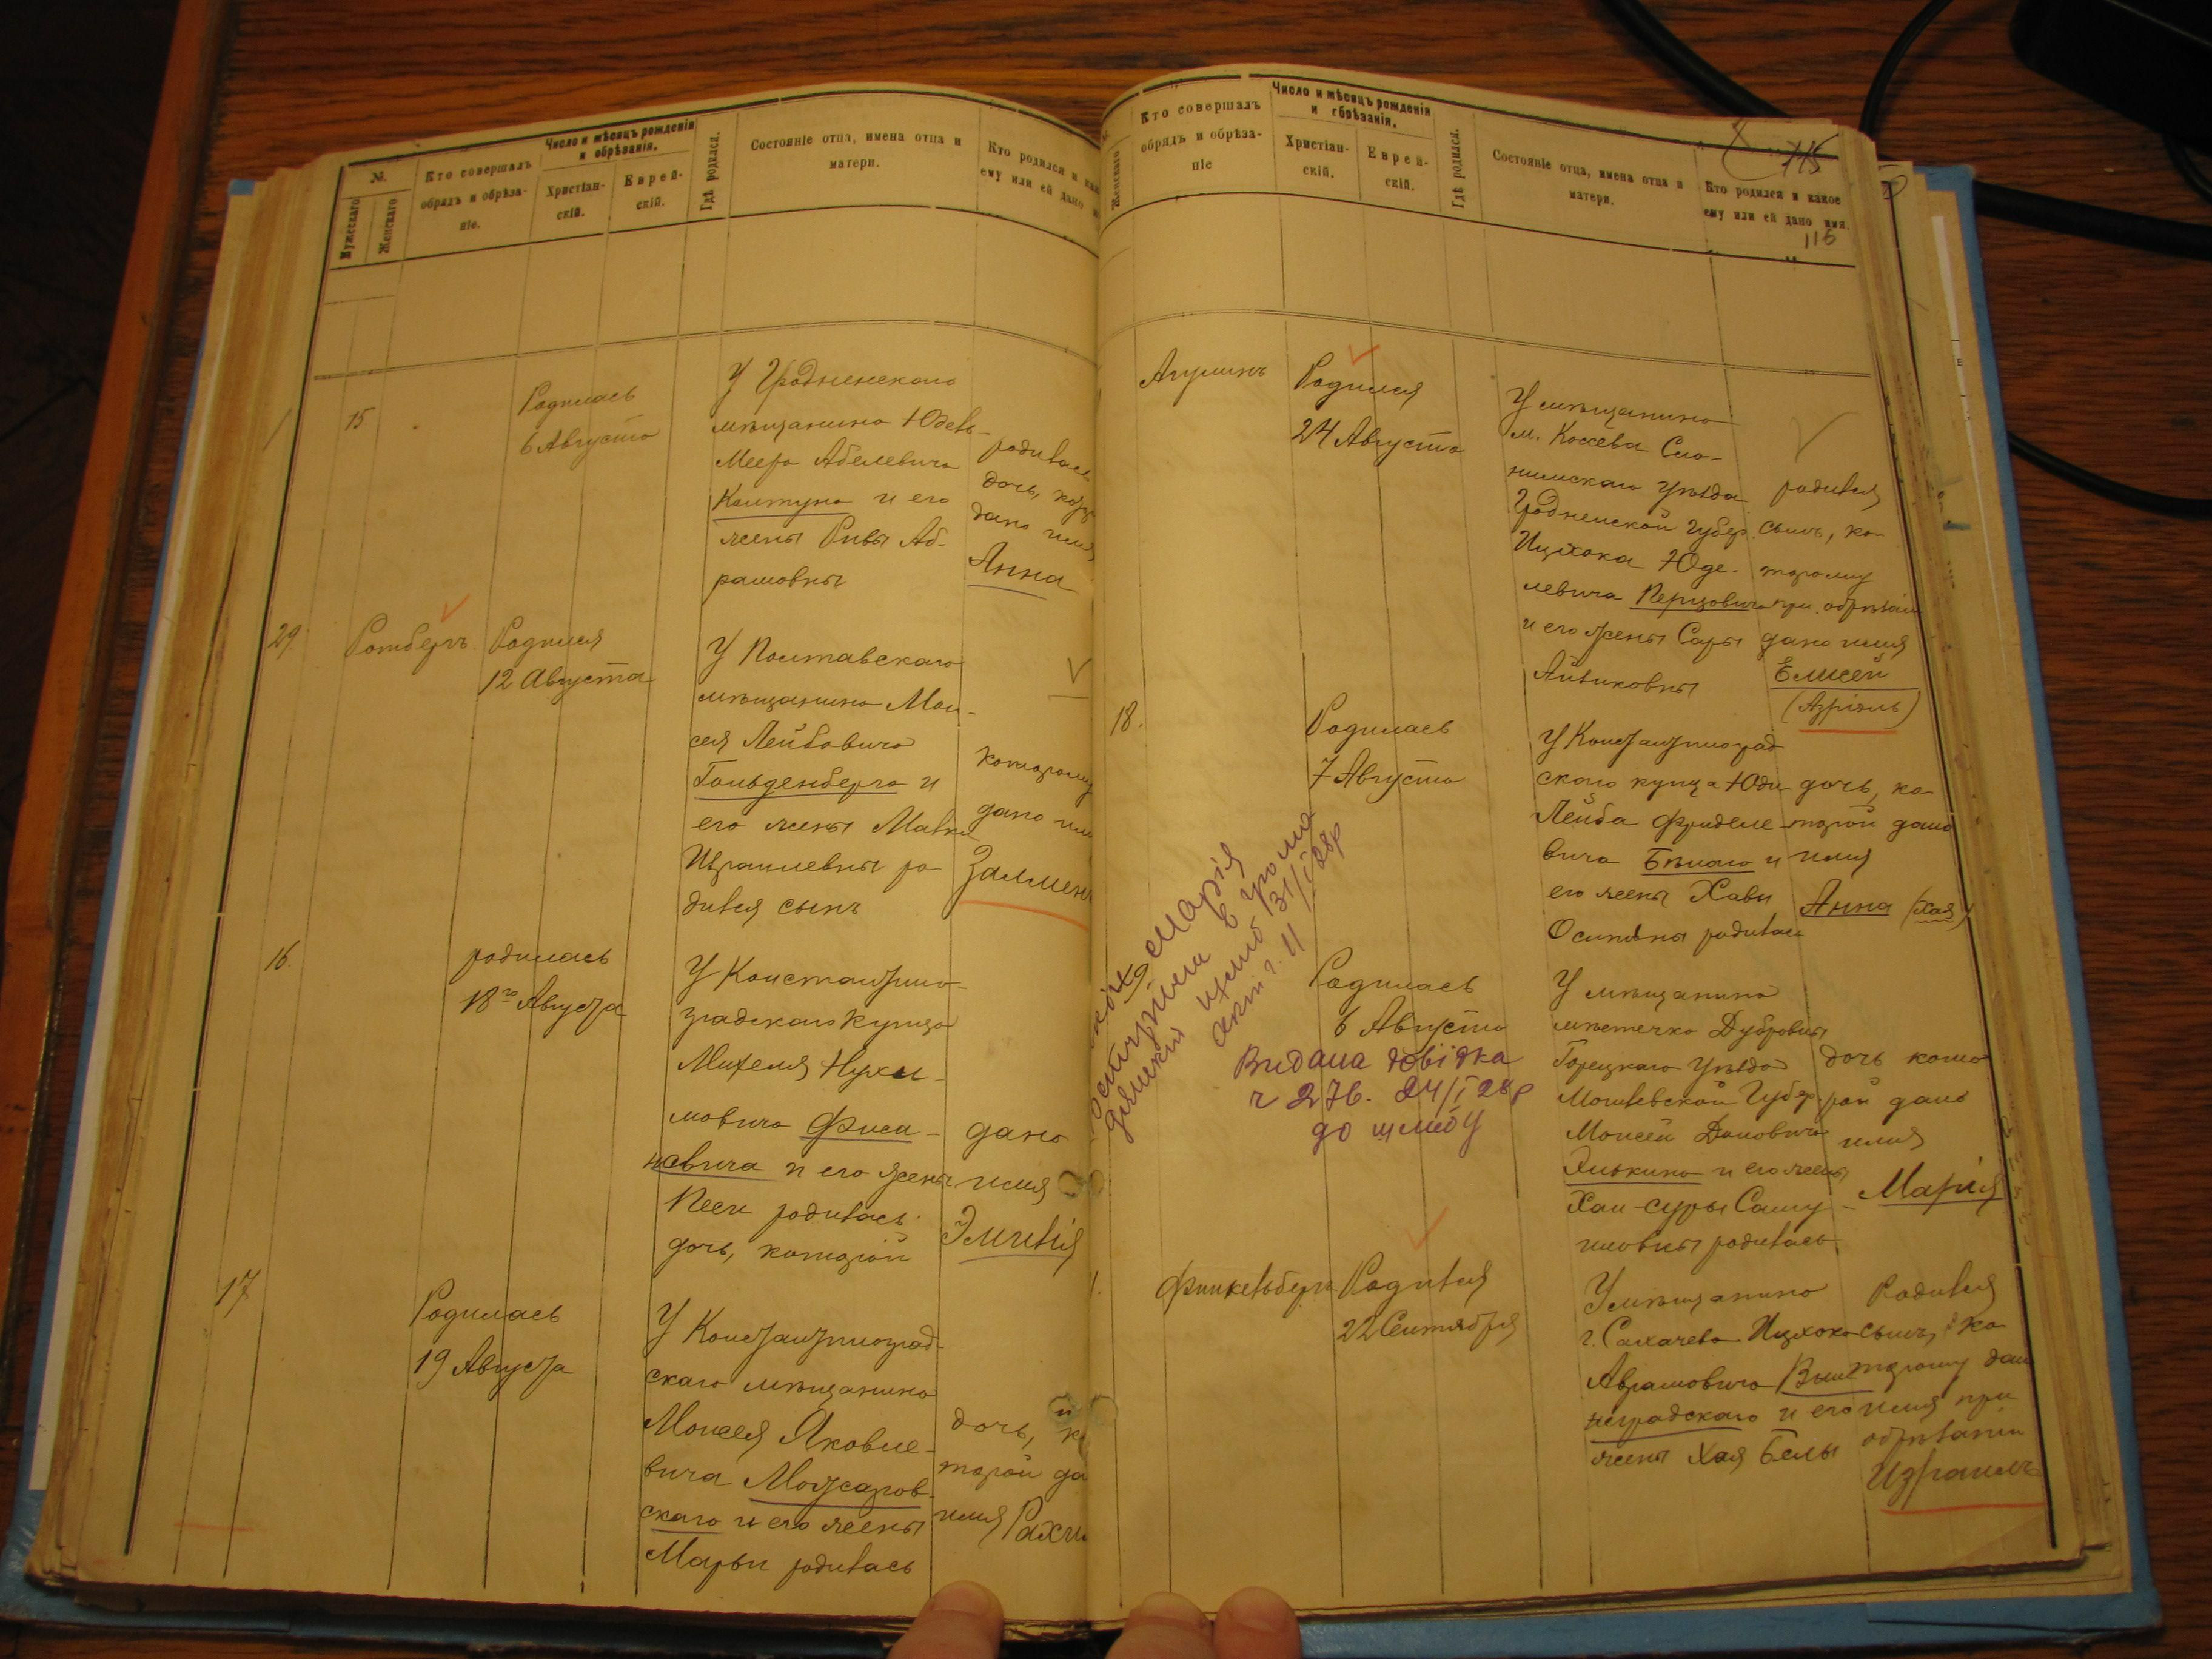 №.
Мужескаго
Женскаго
Кто совершалъ
обрядъ и обрѣза-
ніе.
Число и мѣсяцъ рожденія
и обрѣзанія.
Христіан-
скій.
Еврей-
скій.
Гдѣ родился.
Состояніе отца, имена отца и
матери.
Кто родился и как
ему или ей дано
15
Родилась
6 Августа
У Гродненскаго
мѣщанина Юдель
Меера Абелевича
Колтуна и его
жены Ривы Аб-
рамовны
родилась
дочь,
дано имя
Анна
29
Ротбергъ
Родился
12 Августа
У Полтавскаго
мѣщанина Мои-
сея Лейбовича
Гольденберга и
его жены Малки
Израилевны ро-
дился сынъ
которому
дано имя
Залмен
16.
родилась
18го Августа
У Константино-
градскаго купца
Михеля Нухи-
мовича Фиса-
новича и его жены
Песи родилась
дочь, которой
дано
имя
Эмилія
17
Родилась
19 Августа
У Константиноград-
скаго мѣщанина
Моисея Яковле-
вича Можаров-
скаго и его жены
Марьи родилась
дочь, ко
торой да
имя Рахи
Женскаго
Кто совершалъ
обрядъ и обрѣза-
ніе
Число и мѣсяцъ рожденія
и обрѣзанія.
Христіан-
скій.
Еврей-
скій.
Гдѣ родился.
Состояніе отца, имена отца и
матери.
115
Кто родился и какое
ему или ей дано имя.
116
Агулинъ
Родился
24 Августа
У мѣщанина
м. Коссева Сло-
нимскаго уѣзда
Гродненской Губер.
Ицхока Юде-
левича Перцовича
и его жены Сары
Айзиковны
родился
сынъ, ко-
торому
при обрѣзаніи
дано имя
Елисей
(Азріэль)
18.
Родилась
7 Августа
У Константиноград
скаго купца Юди-
Лейба Фриделе-
вича Бѣлаго и
его жены Хавы
Осиповны родилась
дочь, ко-
торой дано
имя
Анна (Хая)
Марія
31/I 28р
Родилась
6 Августа
Видана довідка
ч 276. 24/I 28р
до шлюбу
У мѣщанина
мѣстечка Дубровны
Горецкаго уѣзда
Могилевской Губер.
Моисея
и его жены
Хаи-суры Саму-
иловны родилась
дочь кото
рой дано
имя
Марія
Финкельбергъ
Родился
22 Сентября
У мѣщанина
г. Сохачева Ицхока
Аврамовича Выше-
неградскаго и его
жены Хая Бейлы
Родился
сынъ, ко
торому дан
имя при
обрѣзаніи
Израиль